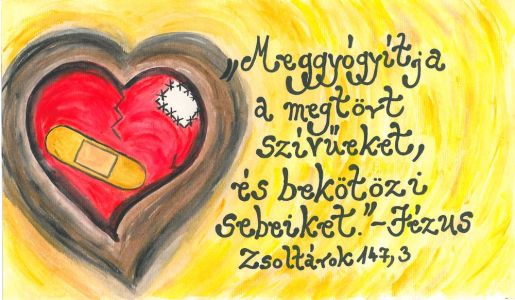 „Meggyógyítja
a megtört
szívűeket,
és bekötözi
sebeiket."-Jézus
Zsoltárok 147,3